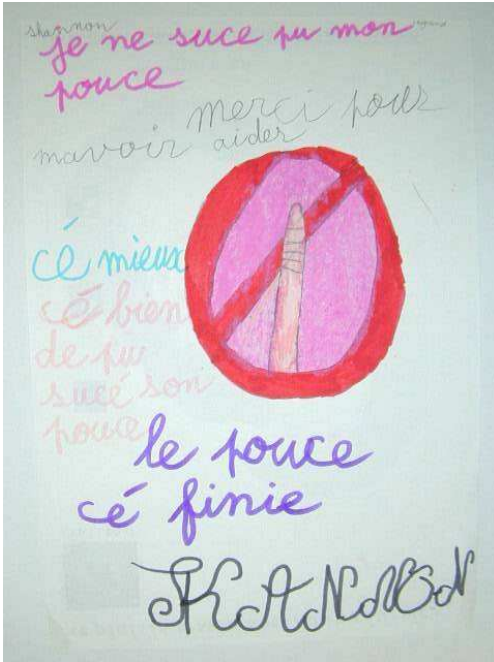 shannon
je ne suce pu mon
pouce
merci pour
mavoir aider
cé mieux
cé bien
de pu
sucé son
pouce
le pouce
cé finie